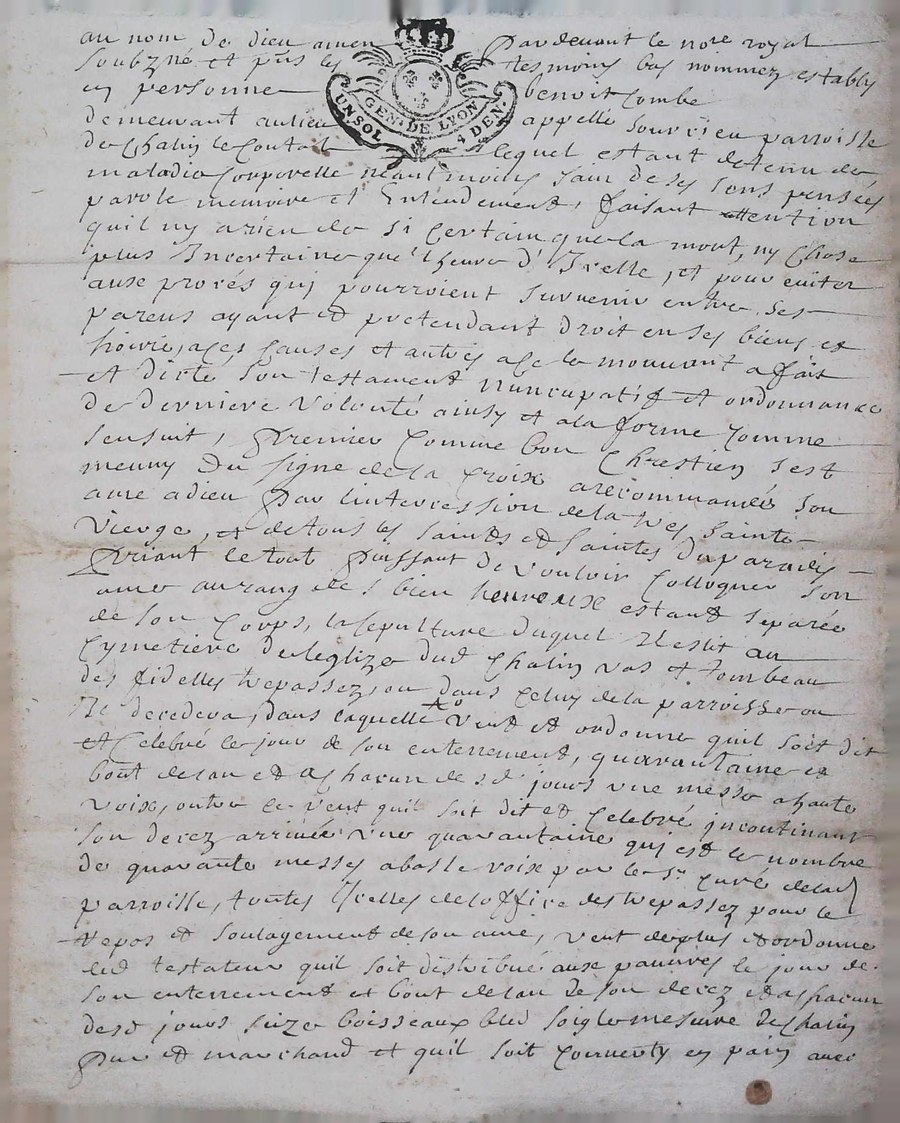 au nom de dieu amen Pardevant le nore royal
soubzné et pnts les tesmoins bas nommez estably
en personne benoit Combe
demeurant au lieu appellé Souvrieu parroisse
de Chalin le Contal lequel estant detenu de
maladie Corporelle neantmoins sain de ses sens pensées
parole memoire et Entendement, faisant attention
quil ny a rien de si certain que la mort, ny chose
plus Incertaine que l'heure d'Icelle, et pour eviter
aux procés qui pourroient survenir entre ses
parens ayant et pretendant droit en ses biens et
hoirie, a ces causes et autres a ce le mouvant a fait
et dicté son testament nuncupatif et ordonnance
de derniere volonté ainsy et a la forme comme
sensuit, Premier comme bon Chrestien sest
meuny du signe de la Croix a recommandé son
ame a dieu par lintercession de la sainte
Vierge, et de tous les saints et saintes du paradis
Priant le tout puissant de vouloir Colloquer son
ame au rang des bien heureux estant separée
de son Corps, la sepulture duquel Il eslit au
Cymetiere de leglize dud Chalin vas et tombeau
des fidelles trepassez, ou dans celuy de la parroisse ou
Il decedera, dans laquelle veut et ordonne quil soit dit
et Celebré le jour de son enterrement, quarantaine et
bout de lan et a chacun de sd jours une messe a haute
voix, outre ce veut quil soit dit et Celebré incontinant
son decez arrivée une quarantaine qui est le nombre
de quarante messes a basse voix par le sr Curé de lad
parroisse, toutes Icelles de loffice des trepassez pour le
repos et soulagement de son ame, veut de plus et ordonne
led testateur quil soit distribué aux pauvres le jour de
son enterrement et bout de lan de son decez et a chacun
desd jours seize boisseaux bled soigle mesure de Chalin
Pur et marchand et quil soit Converty en pain avec
UN SOL GENt. DE LYON 4 DEN.